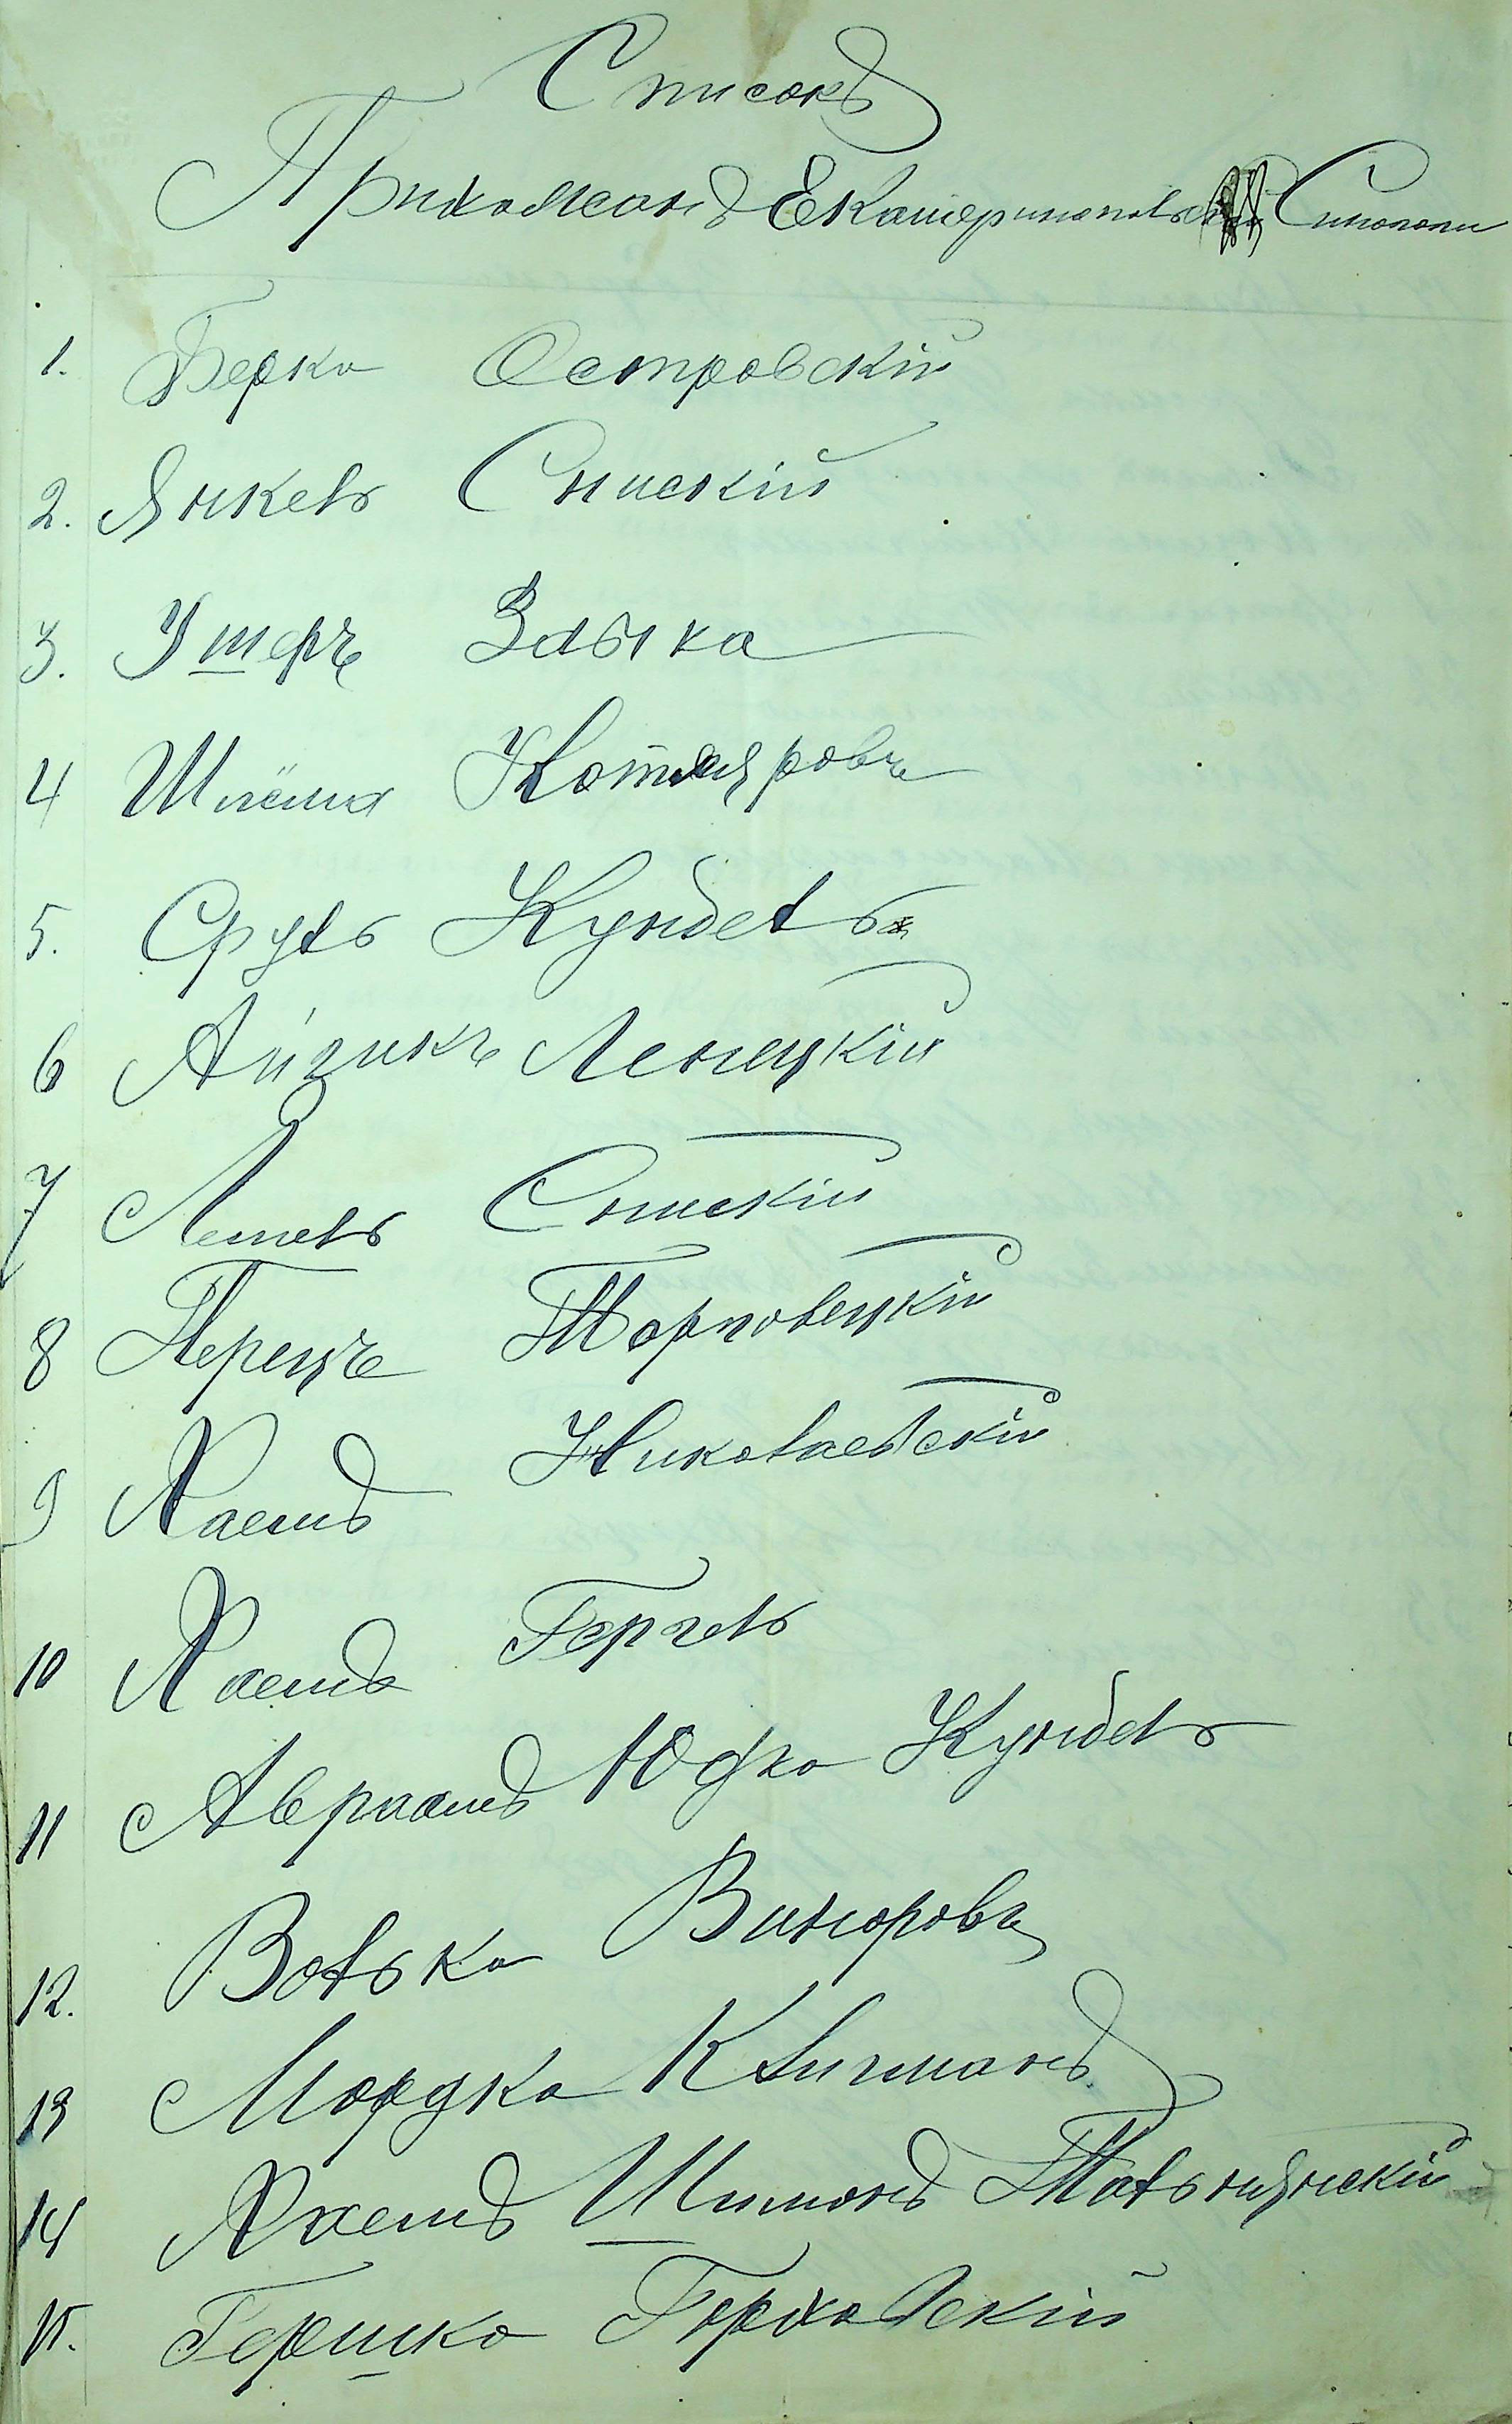 Списокъ
Прихожанъ Екатеринопольской Синогоги
1. Берко Островскій
2. Янкель Сниский
3. Ушеръ Залыка
4 Шлёма Котляровъ
5. Сруль Кундель
6 Айзикъ Ленецкій
7 Лейзель Снискій
8 Перецъ Торговецкій
9 Хаемъ Николаевскій
10 Хаемъ Герчель
11 Авраамъ Юдко Кундель
12. Волько Винюровъ
13 Мордко Клигманъ
14 Хаемъ Шимонъ Тальнянскій
15. Гершко Гороховскій